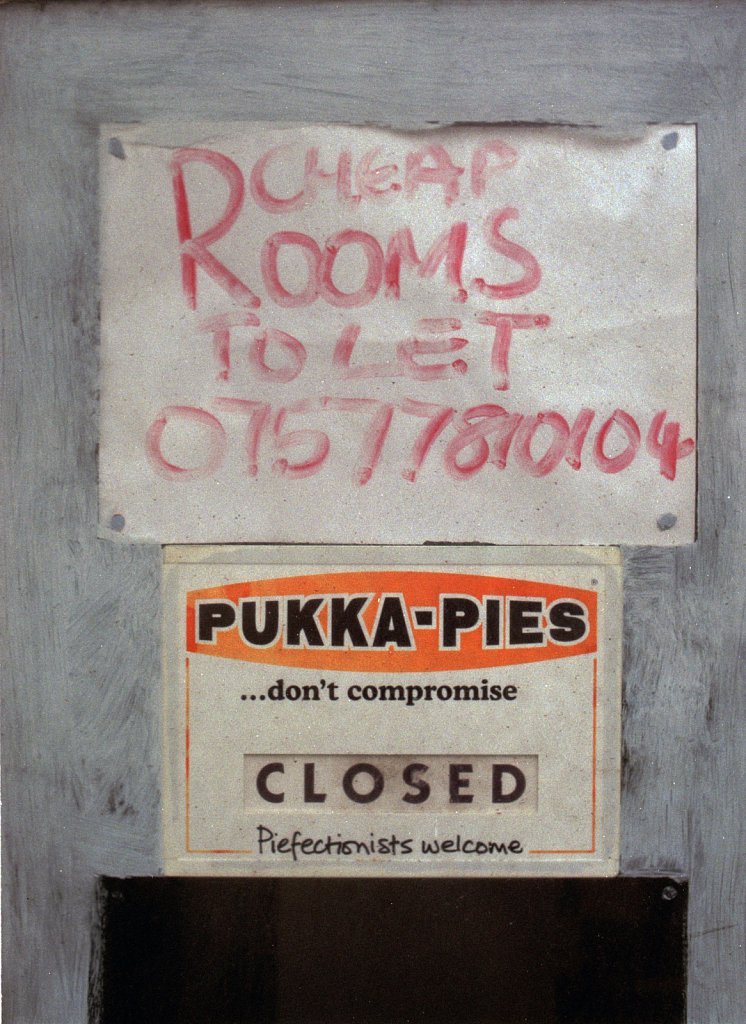 CHEAP
ROOMS
TO LET
07577810104
PUKKA-PIES®
...don't compromise
CLOSED
Piefectionists welcome